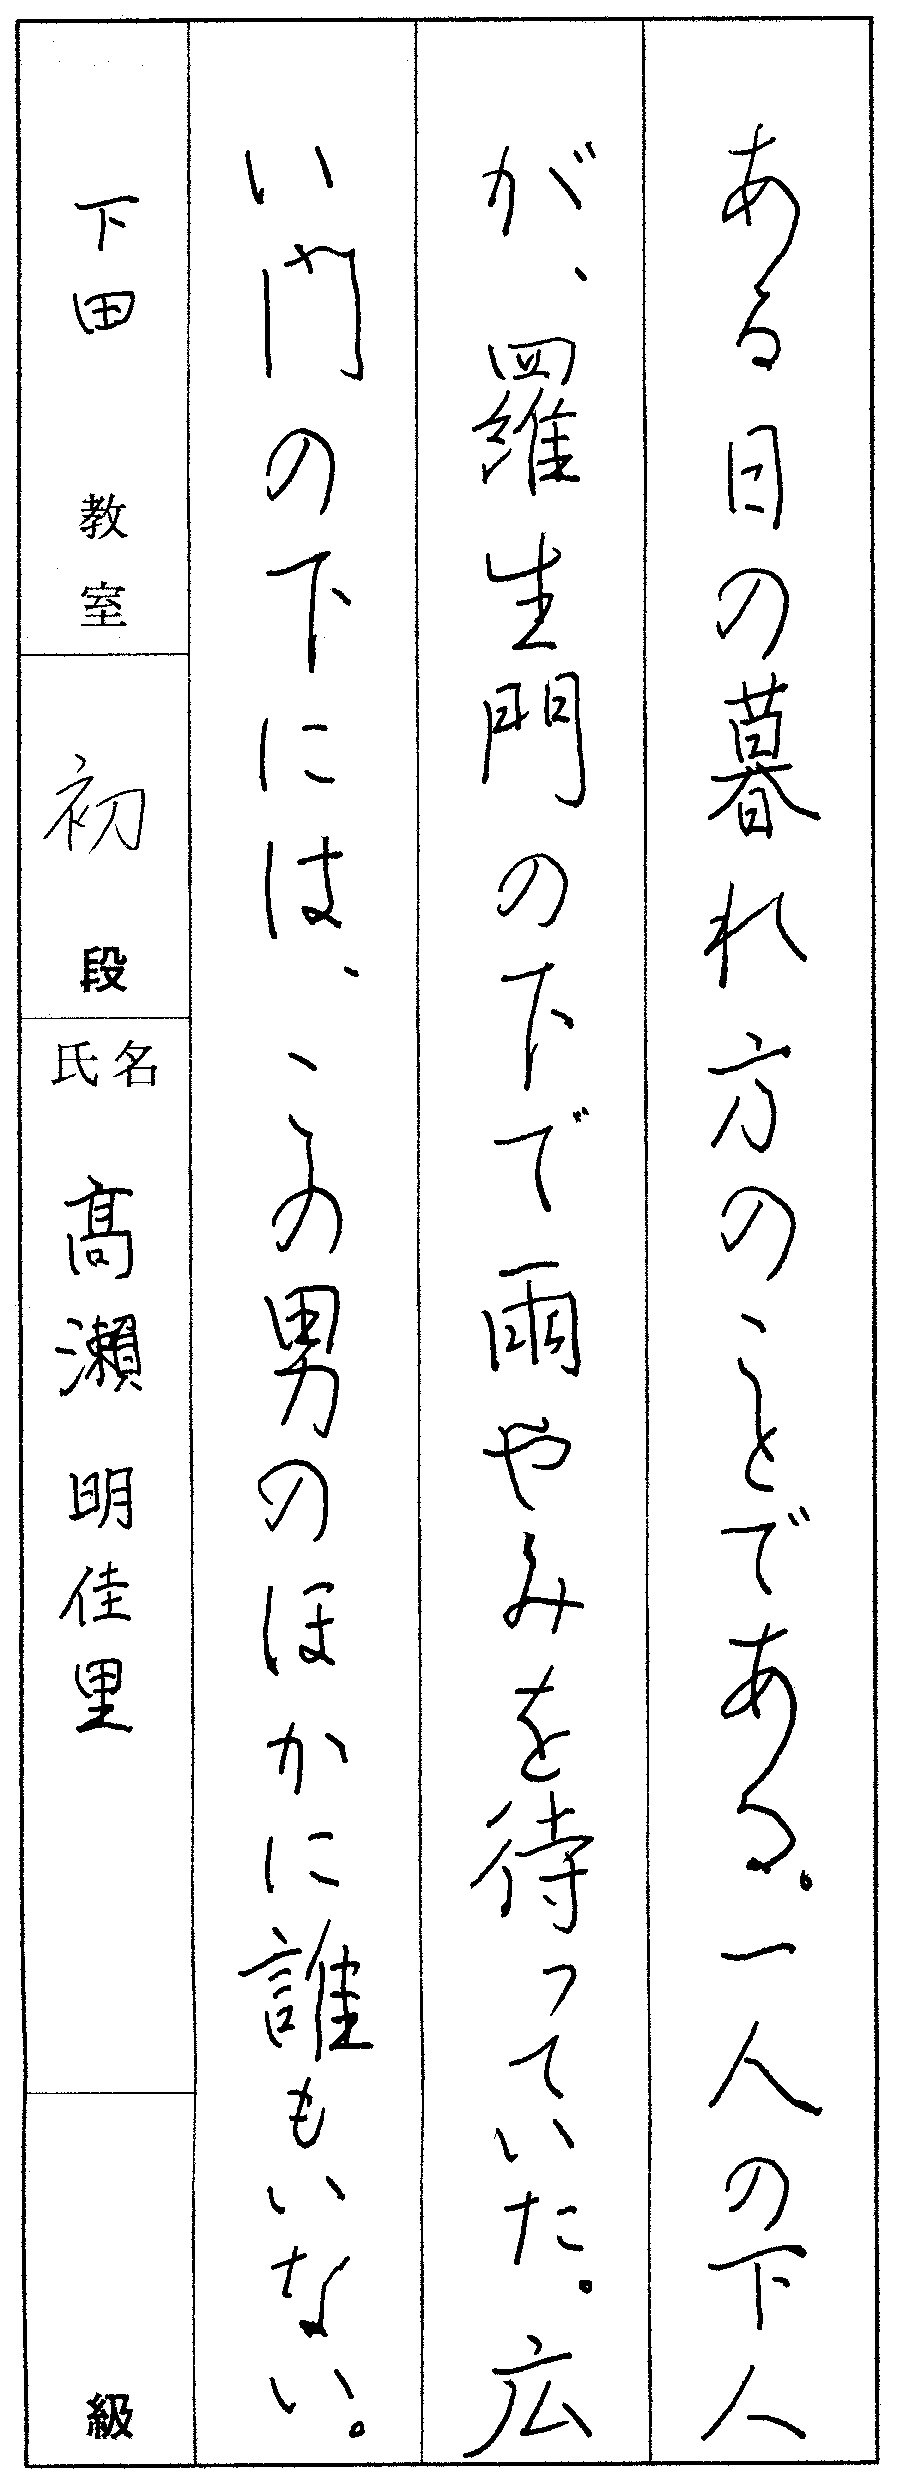 ある日の暮れ方のことである。一人の下人
が、羅生門の下で雨やみを待っていた。広
い門の下には、この男のほかに誰もいない。
下田 教室
初 段
氏名 髙瀨 明佳里
級